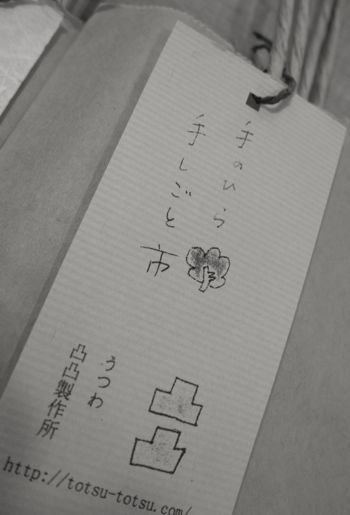 手のひら
手しごと
市
うつわ
凸凸製作所
http://totsu-totsu.com/